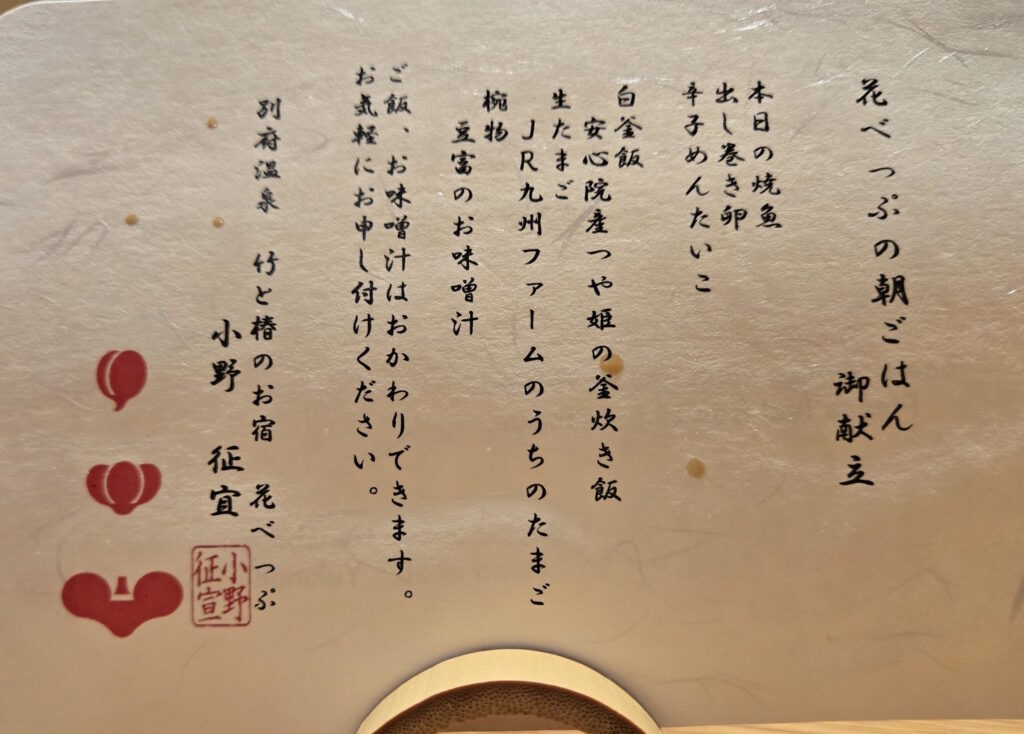 花べっぷの朝ごはん
御献立
本日の焼魚
出し巻き卵
辛子めんたいこ
白釜飯
安心院産つや姫の釜炊き飯
生たまご
JR九州ファームのうちのたまご
椀物
豆富のお味噌汁
ご飯、お味噌汁はおかわりできます。
お気軽にお申し付けください。
別府温泉 竹と椿のお宿 花べっぷ
小野 征宜
小野
征宣